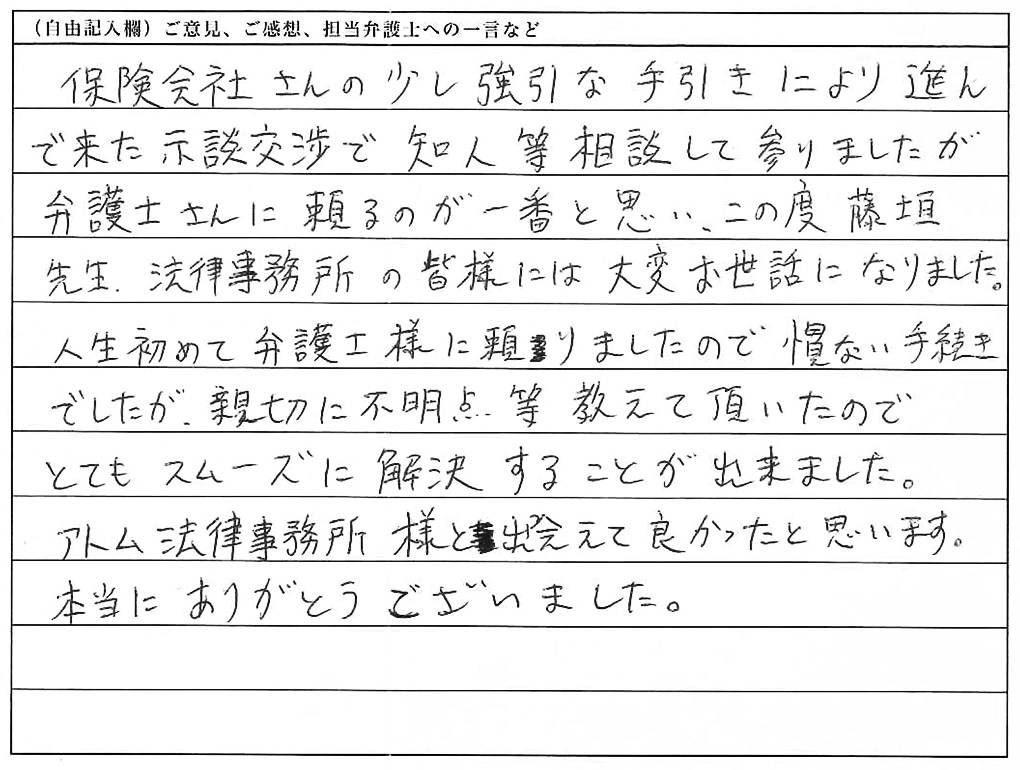 （自由記入欄）ご意見、ご感想、担当弁護士への一言など
保険会社さんの少し強引な手引きにより進ん
で来た示談交渉で知人等相談して参りましたが
弁護士さんに頼るのが一番と思い、この度藤垣
先生、法律事務所の皆様には大変お世話になりました。
人生初めて弁護士様に頼りましたので慣ない手続き
でしたが、親切に不明点、等教えて頂いたので
とてもスムーズに解決することが出来ました。
アトム法律事務所様と出会えて良かったと思います。
本当にありがとうございました。